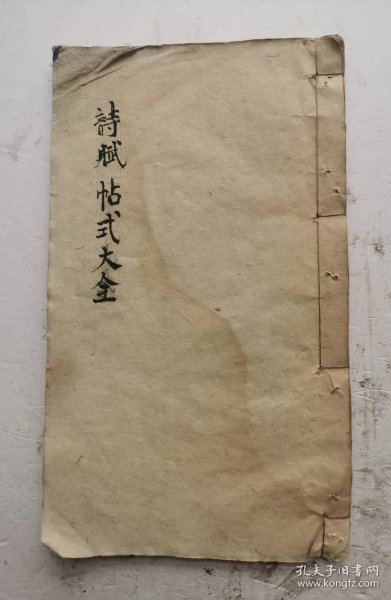 詩賦帖式大全
孔夫子旧书网
www.kongfz.com